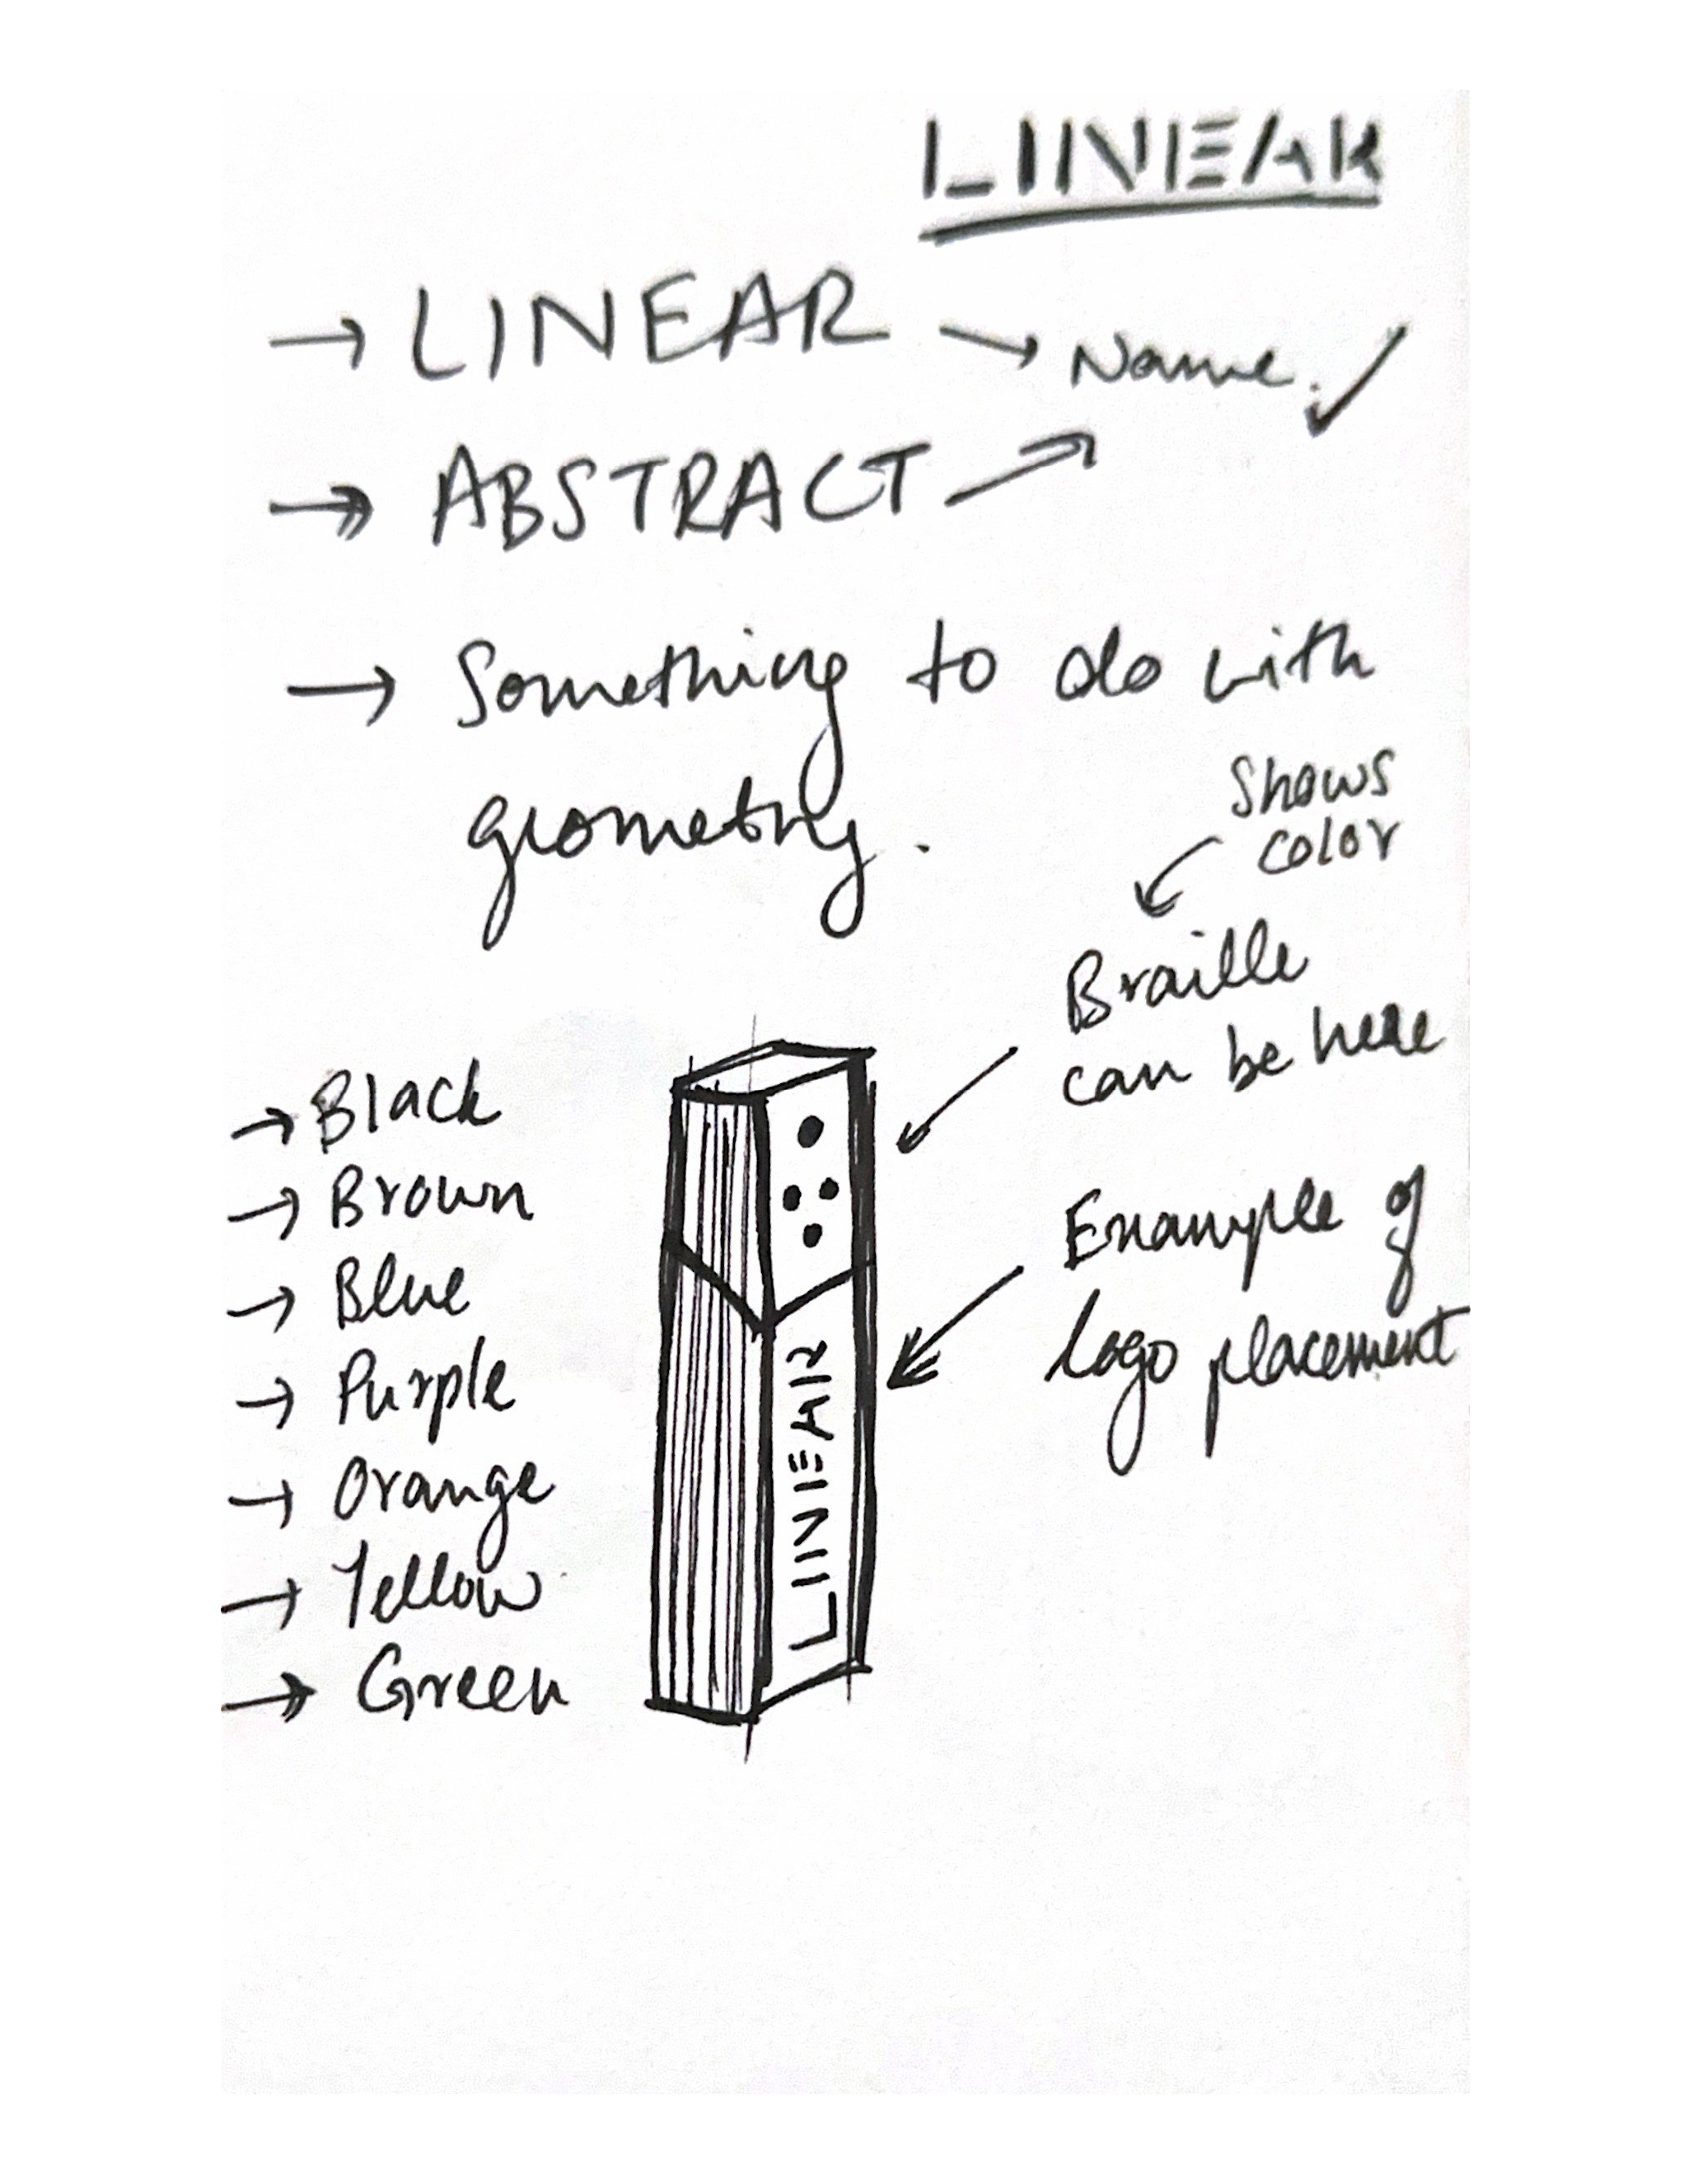 LINEAR
→ LINEAR → Name. ✓
→ ABSTRACT →
→ Something to do with
geometry.
Shows
color
Braille
can be here
→ Black
→ Brown
→ Blue
→ Purple
→ Orange
→ Yellow
→ Green
Example of
logo placement
LINEAR